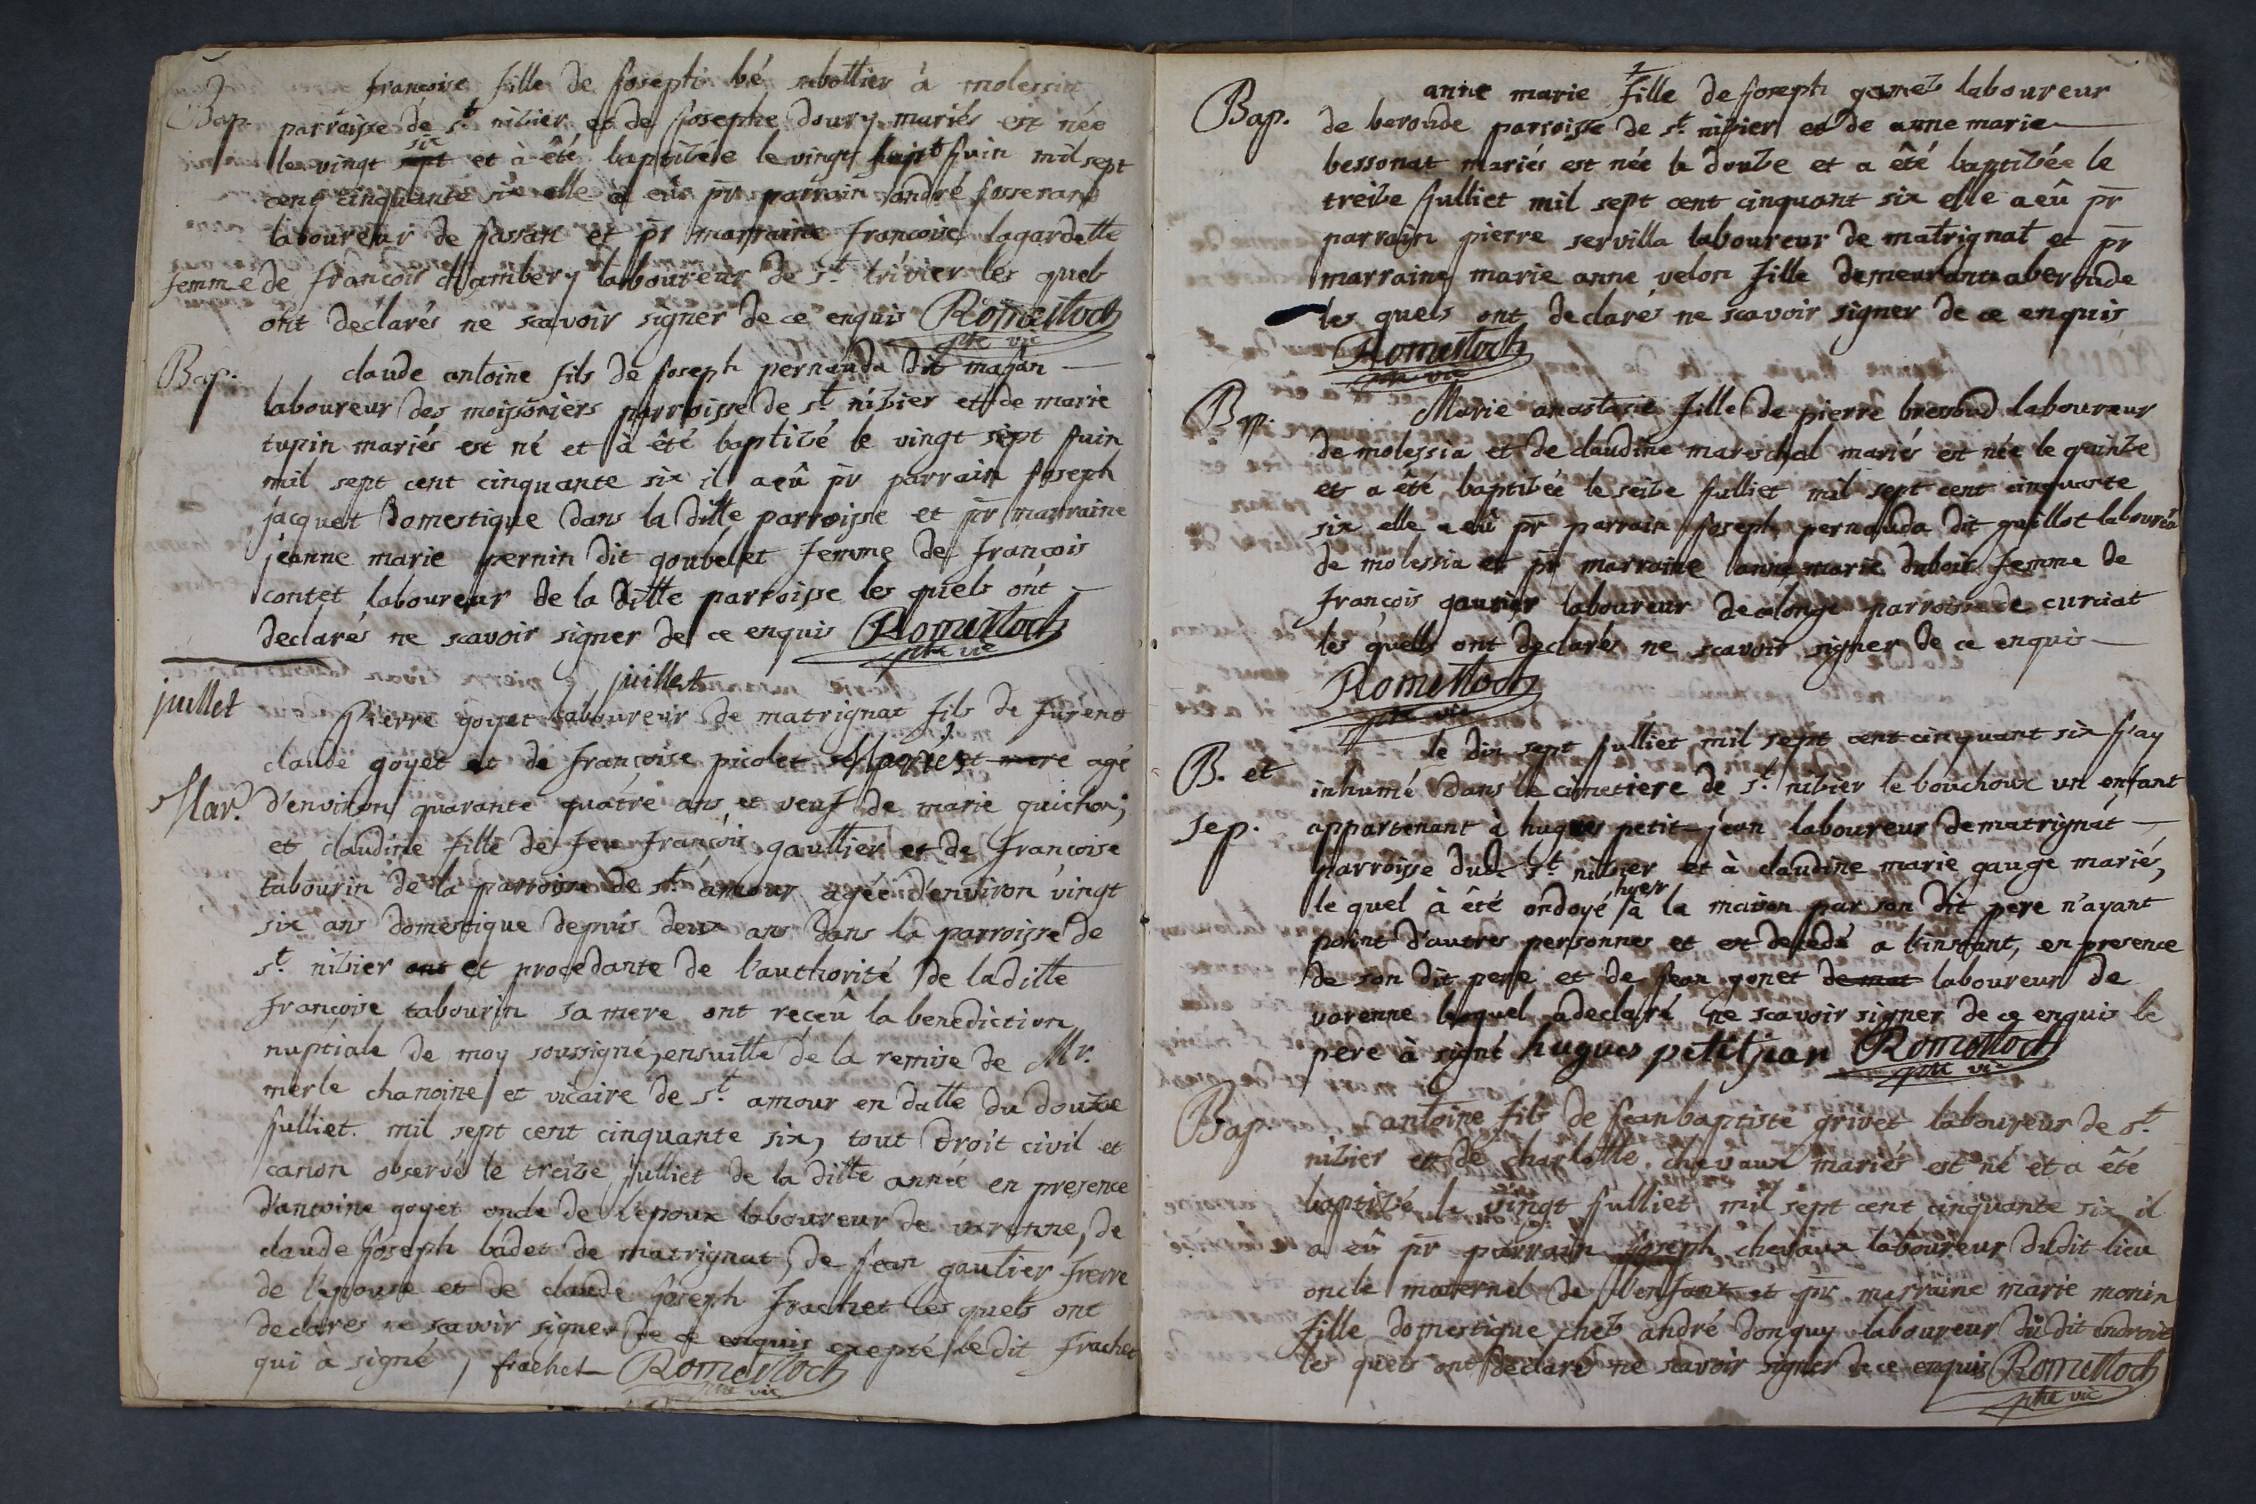 Bap. francoise fille de Joseph bé sabottier à molessia
parroisse de st. nizier et de Josephe doury mariés est née
le vingt six et à été baptizée le vingt huit Juin mil sept
cent cinquante six elle a eû pr parrain andré Josserand
laboureur de Jassan et pr marraine francoise lagardette
femme de francois chambery laboureur de st. trivier les quels
ont declarés ne scavoir signer de ce enquis Romestloch
ptre vic
Bap. claude antoine fils de Joseph pernauda dit mason
laboureur des moissoniers parroisse de st. nizier et de marie
tupin mariés est né et à été baptizé le vingt sept Juin
mil sept cent cinquante six il a eû pr parrain Joseph
jacquet domestique dans la ditte parroisse et pr marraine
jeanne marie pernin dit goubelet femme de françois
contet laboureur de la ditte parroisse les quels ont
declarés ne scavoir signer de ce enquis Romestloch
ptre vic
juillet
juillet
Pierre goyet laboureur de matrignat fils de furent
claude goyet et de françoise picolet Mariés et mere agé
Mar. d'environ quarante quatre ans et veuf de marie guichon;
et claudine fille de feu françois gaultier et de francoise
tabourin de la parroisse de st. amour agée d'environ vingt
six ans domestique depuis deux ans dans la parroisse de
st. nizier ont et procedante de l'authorité de laditte
françoise tabourin sa mere ont reçeû la benediction
nuptiale de moy soussigné, ensuitte de la remise de Mr.
merle chanoine et vicaire de st. amour en datte du douze
Julliet mil sept cent cinquante six, tout droit civil et
canon observé le treize Julliet de la ditte année en presence
d'antoine goyet oncle de l'epoux laboureur de varenne, de
claude Joseph badet de matrignat, de Jean gautier frerre
de l'epouse et de claude Joseph frachet les quels ont
declarés ne scavoir signer de ce enquis exepté le dit frachet
qui à signé, frachet Romestloch
ptre vic
Bap. anne marie fille de Joseph gonet laboureur
de beroude parroisse de st. nizier et de anne marie
bessonat mariés est née le douze et a été baptizée le
treize Julliet mil sept cent cinquant six elle a eû pr
parrain pierre servilla laboureur de matrignat et pr
marraine marie anne velon fille demeurante a beroude
les quels ont declarés ne scavoir signer de ce enquis
Romestloch
ptre vic
Bap. Marie anastasie fille de pierre bressoud laboureur
de molessia et de claudine mareschal mariés est née le quinze
et a été baptizée le seize Julliet mil sept cent cinquante
six elle a eû pr parrain Joseph pernauda dit guillot laboureur
de molessia et pr marraine anne marie dubois femme de
françois gautier laboureur de colonge parroisse de curciat
les quells ont declarés ne scavoir signer de ce enquis
Romestloch
ptre vic
le dix sept Julliet mil sept cent cinquant six J'ay
B. et inhumé dans le cimetiere de st. nizier le bouchoux un enfant
sep. appartenant à hugues petit-jean laboureur de matrignat
parroisse dud. st. nizier et à claudine marie gauge mariés,
le quel à été ondoyé hyer à la maison par son dit pere n'ayant
point d'autres personnes et est decedé a l'instant, en presence
de son dit pere et de Jean gonet de mat laboureur de
varenne lequel a declaré ne scavoir signer de ce enquis le
pere à signé hugues petitjean Romestloch
ptre vic
Bap. antoine fils de Jean baptiste grivet laboureur de st.
nizier et de charlotte chevaux mariés est né et a été
baptizé le vingt Julliet mil sept cent cinquante six il
a eû pr parrain Joseph chevaux laboureur dudit lieu
oncle maternel de l'enfant et pr marraine marie monin
fille domestique chez andré donguy laboureur du dit endroit
les quels ont declaré ne scavoir signer de ce enquis Romestloch
ptre vic